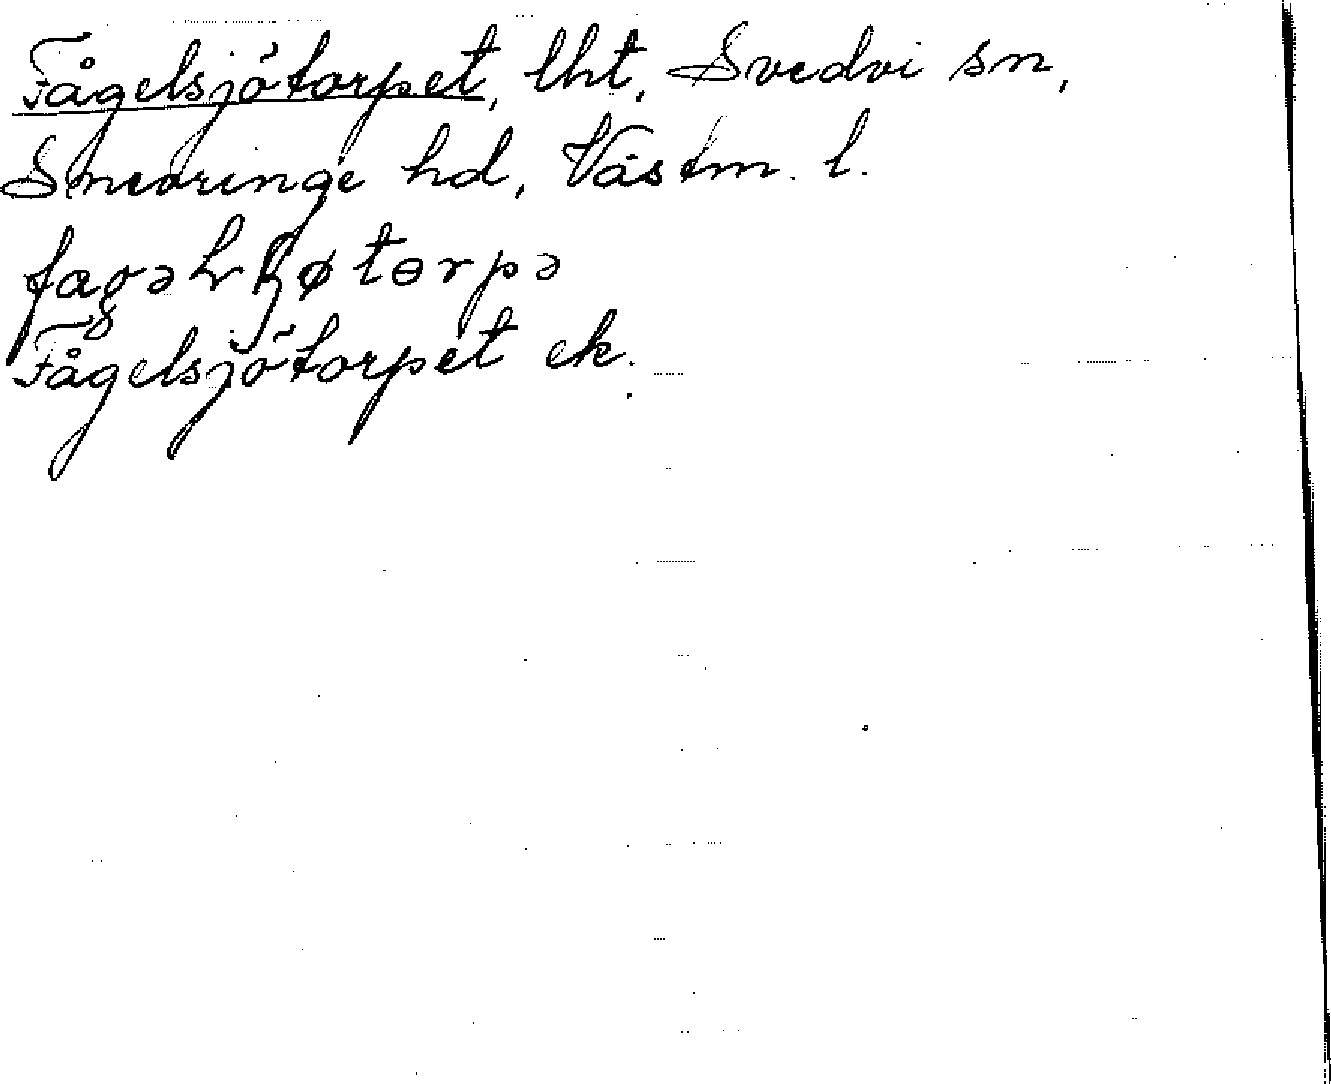 Fågelsjötorpet, lht, Svedvi sn,
Snevringe hd, Västm. l.
Fågelsjötorpet ek.